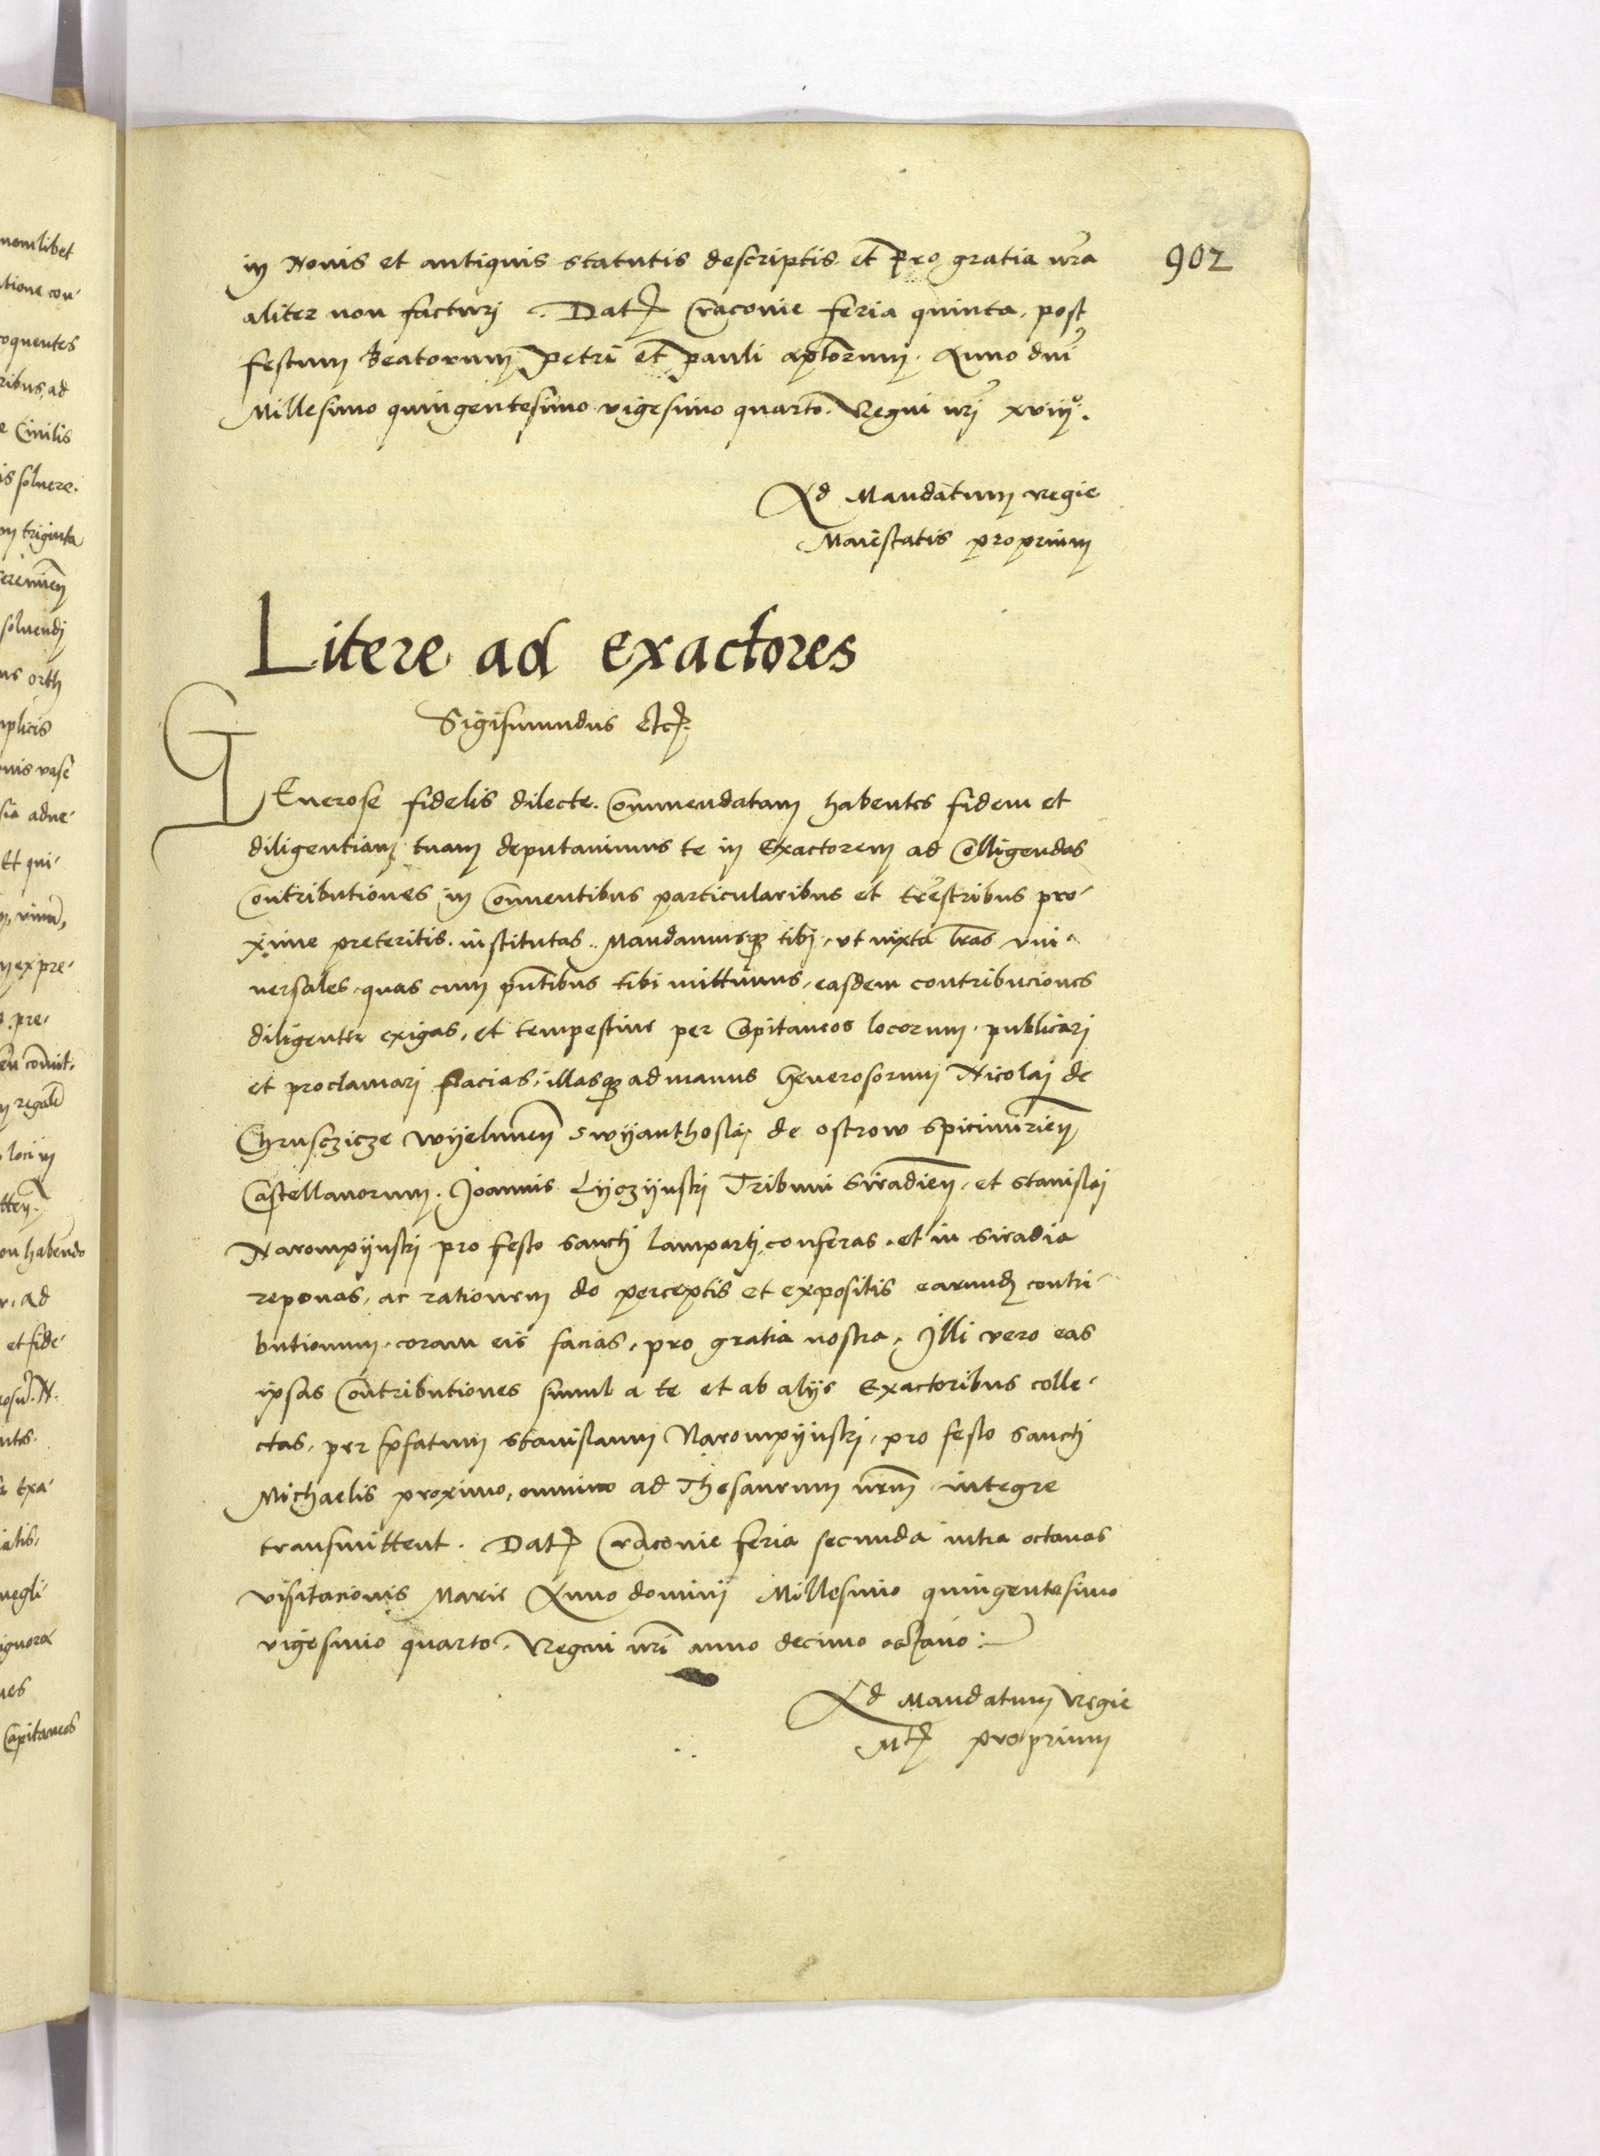 902
in Nouis et antiquis statutis descriptis et Pro gratia nra
aliter non facturj . Dat Cracouie feria quinta post
festum Beatorum Petri et Pauli aplorum. Anno dni
Millesimo quingentesimo vigesimo quarto. Regni nrj xviijº.
Ad Mandatum regie
Maiestatis proprium
Litere ad exactores
Sigismundus etc.
GEnerose fidelis dilecte. Commendatam habentes fidem et
diligentiam tuam deputauimus te in Exactorem ad Colligendas
Contributiones in Conuentibus particularibus et trestribus pro-
xime preteritis. institutas. Mandamusq tibj. vt iuxta lras vni-
uersales. quas cum pntibus tibi mittimus. easdem contribuciones
diligenter exigas. et tempestiue per Capitaneos locorum. publicarj
et proclamarj facias. illasq ad manus Generosorum Nicolaj de
Chrusczicze wyelunen Swyanthoslaj de ostrow Spicimirien
Castellanorum. Joannis Lyczynskj Tribuni Siradien. et Stanislaj
Narompynskj pro festo sanctj Lampertj conferas. et in Siradia
reponas. ac rationem de perceptis et expositis earumd contri-
butionum. coram eis facias. pro gratia nostra. Illi vero eas
ipsas Contributiones simul a te et ab alijs Exactoribus colle-
ctas. per pfatum Stanislaum Narompynskj. pro festo sanctj
Michaelis proximo. omnino ad Thesaurum nrm integre
transmittent. Dat Cracouie feria secunda intra octauas
visitacionis Marie Anno dominj Millesimo quingentesimo
vigesimo quarto. Regni nri anno decimo octauo:
Ad Mandatum Regie
Mt proprium